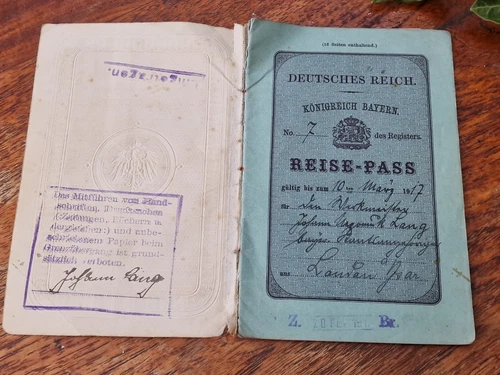 Das Mitführen von Hand-
schriften, Druckwachen
(Zeitungen, Büchern u.
dergleichen) und unbe-
schriebenem Papier beim
Grenzübergang ist grund-
sätzlich verboten.
Johann Lang
(16 Seiten enthaltend.)
DEUTSCHES REICH.
KÖNIGREICH BAYERN.
No. 7 des Registers.
REISE-PASS
gültig bis zum 10ten März 1917
Den Werkmeister
Johann Lang
aus Landau Isar
Z. Br.